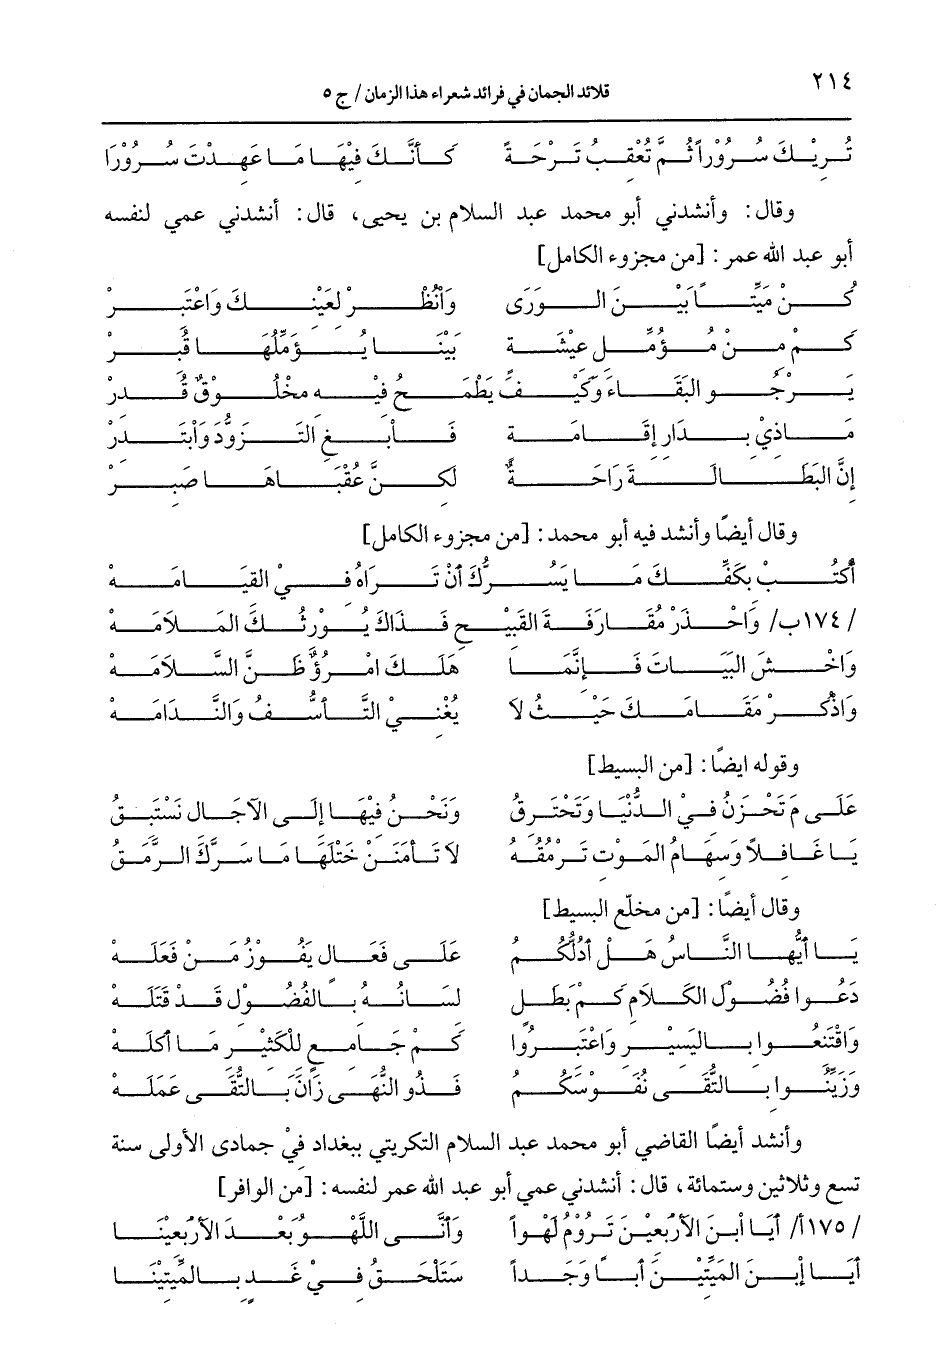 ٢١٤
قلائد الجمان في فرائد شعراء هذا الزمان / ج ٥
تُرِيْكَ سُرُوْراً ثُمَّ تُعْقِبُ تَرْحَةً كَأَنَّكَ فِيْهَا مَا عَهِدْتَ سُرُوْرَا
وقال: وأنشدني أبو محمد عبد السلام بن يحيى، قال: أنشدني عمي لنفسه
أبو عبد الله عمر: [من مجزوء الكامل]
كُنْ مَيِّتًا بَيْنَ الوَرَى وَأنْظُرْ لعَيْنِكَ وَاعْتَبِرْ
كَمْ مِنْ مُؤَمِّلِ عيْشَةٍ بَيْنَا يُؤَمِّلُهَا قُبِرْ
يَرْجُو البَقَاءَ وَكَيْفَ يَطْمَحُ فيْهِ مخْلُوْقٌ قُدِرْ
مَاذِيْ بِدَارِ إقَامَةٍ فَأبِغِ التَزَوُّدَ وَأبتَدِرْ
إنَّ البَطَالَةَ رَاحَةٌ لَكِنَّ عُقْبَاهَا صَبِرْ
وقال أيضًا وأنشد فيه أبو محمد: [من مجزوء الكامل]
أكْتُبْ بِكَفِّكَ مَا يَسُرُّكَ أنْ تَرَاهُ فِيْ القِيَامَهْ
/ ١٧٤ب/ وَاحْذَرْ مُقَارَفَةَ القَبِيْحِ فَذَاكَ يُوْرِثُكَ المَلامَهْ
وَاخْشَ البَيَاتَ فَإنَّمَا هَلَكَ امْرُؤٌ ظَنَّ السَّلامَهْ
وَاذْكُرْ مَقَامَكَ حَيْثُ لاَ يُغْنِيْ التَّأسُّفُ وَالنَّدَامَهْ
وقوله ايضًا: [من البسيط]
عَلَى مَ تَحْزَنُ فِيْ الدُّنْيَا وَتَحْتَرِقُ وَنَحْنُ فِيْهَا إلَى الآجَالِ نَسْتَبِقُ
يَا غَافِلاً وَسِهَامُ المَوْتِ تَرْمُقُهُ لاَ تَأمَنَنْ خَتْلَهَا مَا سَرَّكَ الرَّمَقُ
وقال أيضًا: [من مخلّع البسيط]
يَا أيُّهَا النَّاسُ هَلْ أدُلُّكُمُ عَلَى فَعَالٍ يَفُوْزُ مَنْ فَعَلَهْ
دَعُوا فُضُوْلَ الكَلامِ كَمْ بَطَلٍ لِسَانُهُ بِالفُضُوْلِ قَدْ قَتَلَهْ
وَاقْتَنعُوا بِاليَسِيْرِ وَاعْتَبِرُوْا كَمْ جَامِعٍ لِلْكَثِيْرِ مَا أكَلَهْ
وَزَيِّنُوا بِالتُّقَى نُفُوْسَكُمُ فَذُو النُّهَى زَانَ بَالتُّقَى عَمَلَهْ
وأنشد أيضًا القاضي أبو محمد عبد السلام التكريتي ببغداد فيْ جمادى الأولى سنة
تسع وثلاثين وستمائة، قال: أنشدني عمي أبو عبد الله عمر لنفسه: [من الوافر]
/ ١٧٥أ/ أيَا أبنَ الأرْبَعِيْنَ تَرُوْمُ لَهْواً وَأنَّى اللَّهْوُ بَعْدَ الأرْبَعِيْنَا
أيَا إبنَ المَيِّتِيْنَ أبًا وَجَداً سَتَلْحَقُ فِيْ غَدٍ بِالمَيِّتِيْنَا